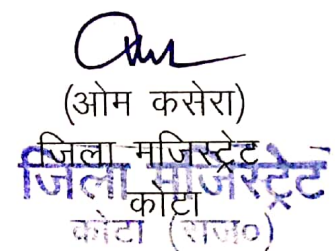 (ओम कसेरा)
जिला मजिस्ट्रेट
जिला मजिस्ट्रेट
कोटा
कोटा (राज०)